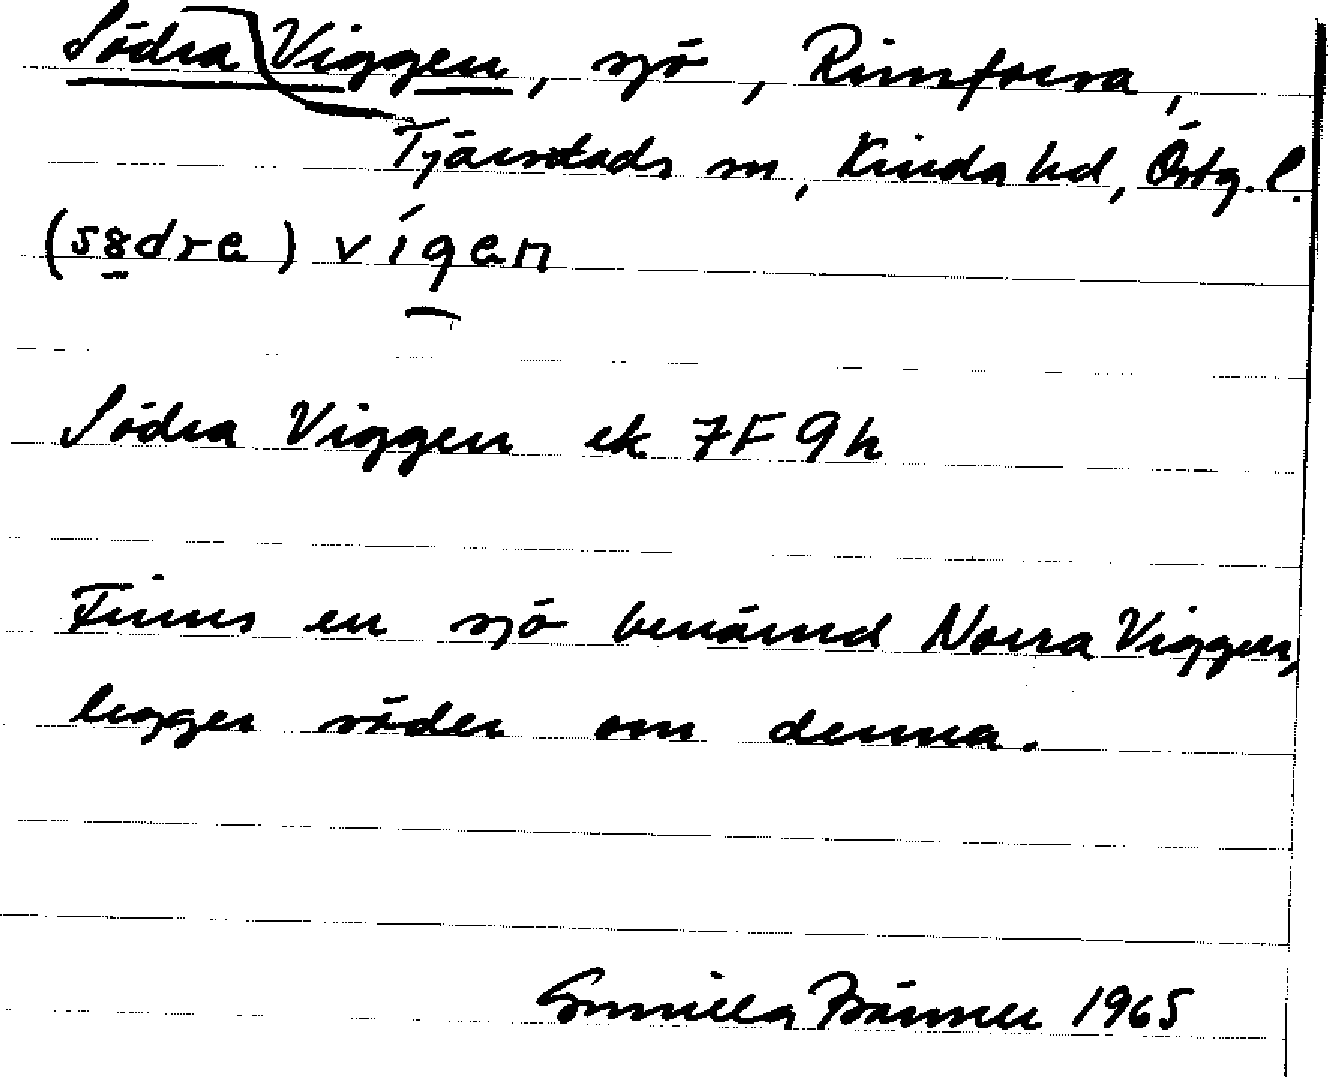 Södra Viggen, sjö, Rimforsa,
Tjärstads sn, Kinda hd, Östg. l.
(s8dre) vígen
Södra Viggen ek 7F 9h
Finns en sjö benämnd Norra Viggen,
ligger söder om denna.
Gunilla 1965